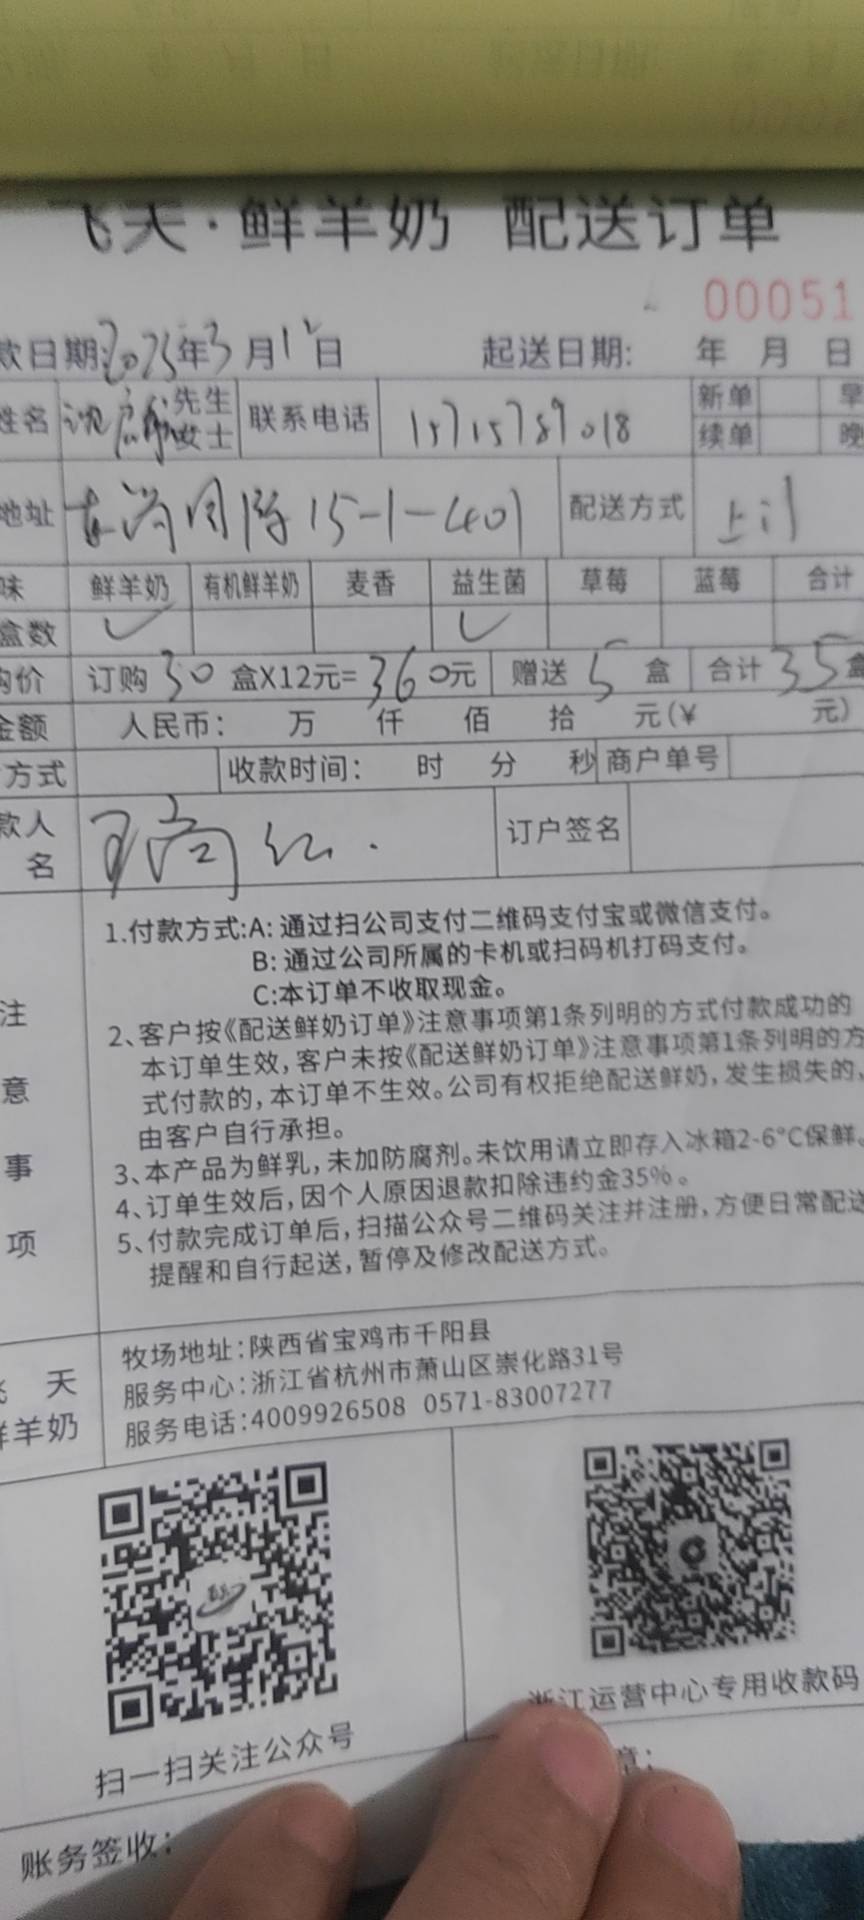 飞天·鲜羊奶 配送订单
00051
款日期:2025年3月12日 起送日期: 年 月 日
姓名 沈 先生 女士 联系电话 15715789018 新单 早
续单 晚
地址 15-1-401 配送方式 上门
味 鲜羊奶 有机鲜羊奶 麦香 益生菌 草莓 蓝莓 合计
盒数 ✓ ✓
购价 订购30盒X12元=360元 赠送5盒 合计35盒
金额 人民币: 万 仟 佰 拾 元(¥ 元)
方式 收款时间: 时 分 秒 商户单号
款人名 订户签名
注意事项
1.付款方式:A: 通过扫公司支付二维码支付宝或微信支付。
B: 通过公司所属的卡机或扫码机打码支付。
C:本订单不收取现金。
2、客户按《配送鲜奶订单》注意事项第1条列明的方式付款成功的
本订单生效,客户未按《配送鲜奶订单》注意事项第1条列明的方
式付款的,本订单不生效。公司有权拒绝配送鲜奶,发生损失的、
由客户自行承担。
3、本产品为鲜乳,未加防腐剂。未饮用请立即存入冰箱2-6°C保鲜。
4、订单生效后,因个人原因退款扣除违约金35%。
5、付款完成订单后,扫描公众号二维码关注并注册,方便日常配送
提醒和自行起送,暂停及修改配送方式。
飞天
鲜羊奶
牧场地址:陕西省宝鸡市千阳县
服务中心:浙江省杭州市萧山区崇化路31号
服务电话:4009926508 0571-83007277
扫一扫关注公众号
浙江运营中心专用收款码
章:
账务签收: